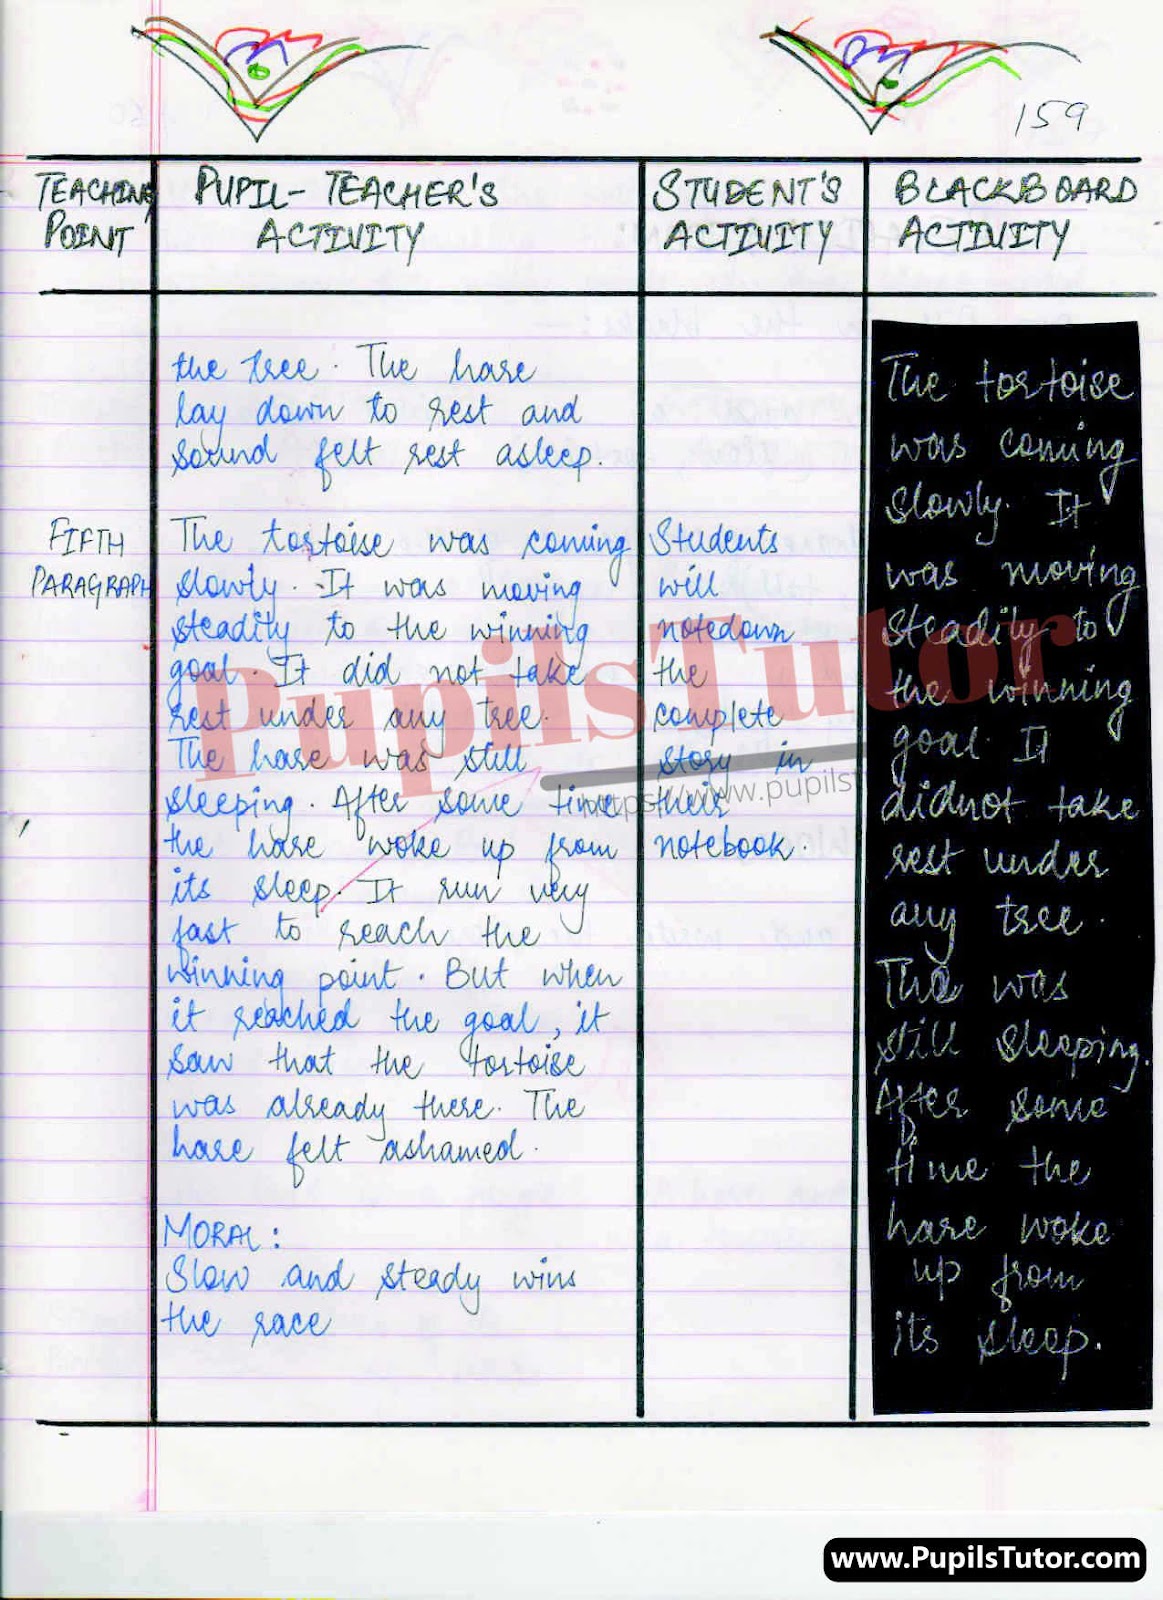 159
TEACHING
POINT
PUPIL-TEACHER'S
ACTIVITY
STUDENT'S
ACTIVITY
BLACKBOARD
ACTIVITY
the tree. The hare
lay down to rest and
sound felt rest asleep.
FIFTH
PARAGRAPH
The tortoise was coming
slowly. It was moving
steadity to the winning
goal. It did not take
rest under any tree.
The hare was still
sleeping. After some time
the hare woke up from
its sleep. It run very
fast to reach the
winning point. But when
it reached the goal, it
saw that the tortoise
was already there. The
hare felt ashamed.
MORAL:
Slow and steady wins
the race
Students
will
notedown
the
complete
story in
their
notebook.
The tortoise
was coming
slowly. It
was moving
steadity to
the winning
goal. It
didnot take
rest under
any tree.
The was
still sleeping.
After some
time the
hare woke
up from
its sleep.
PupilsTutor
https://www.pupilst
www.PupilsTutor.com